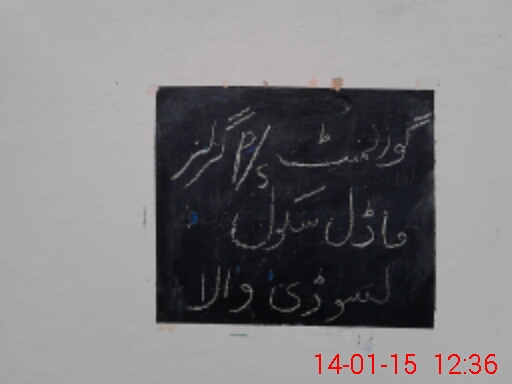 گورنمنٹ P/S گرلز
ماڈل سکول
لسوڈی والا
14-01-15 12:36